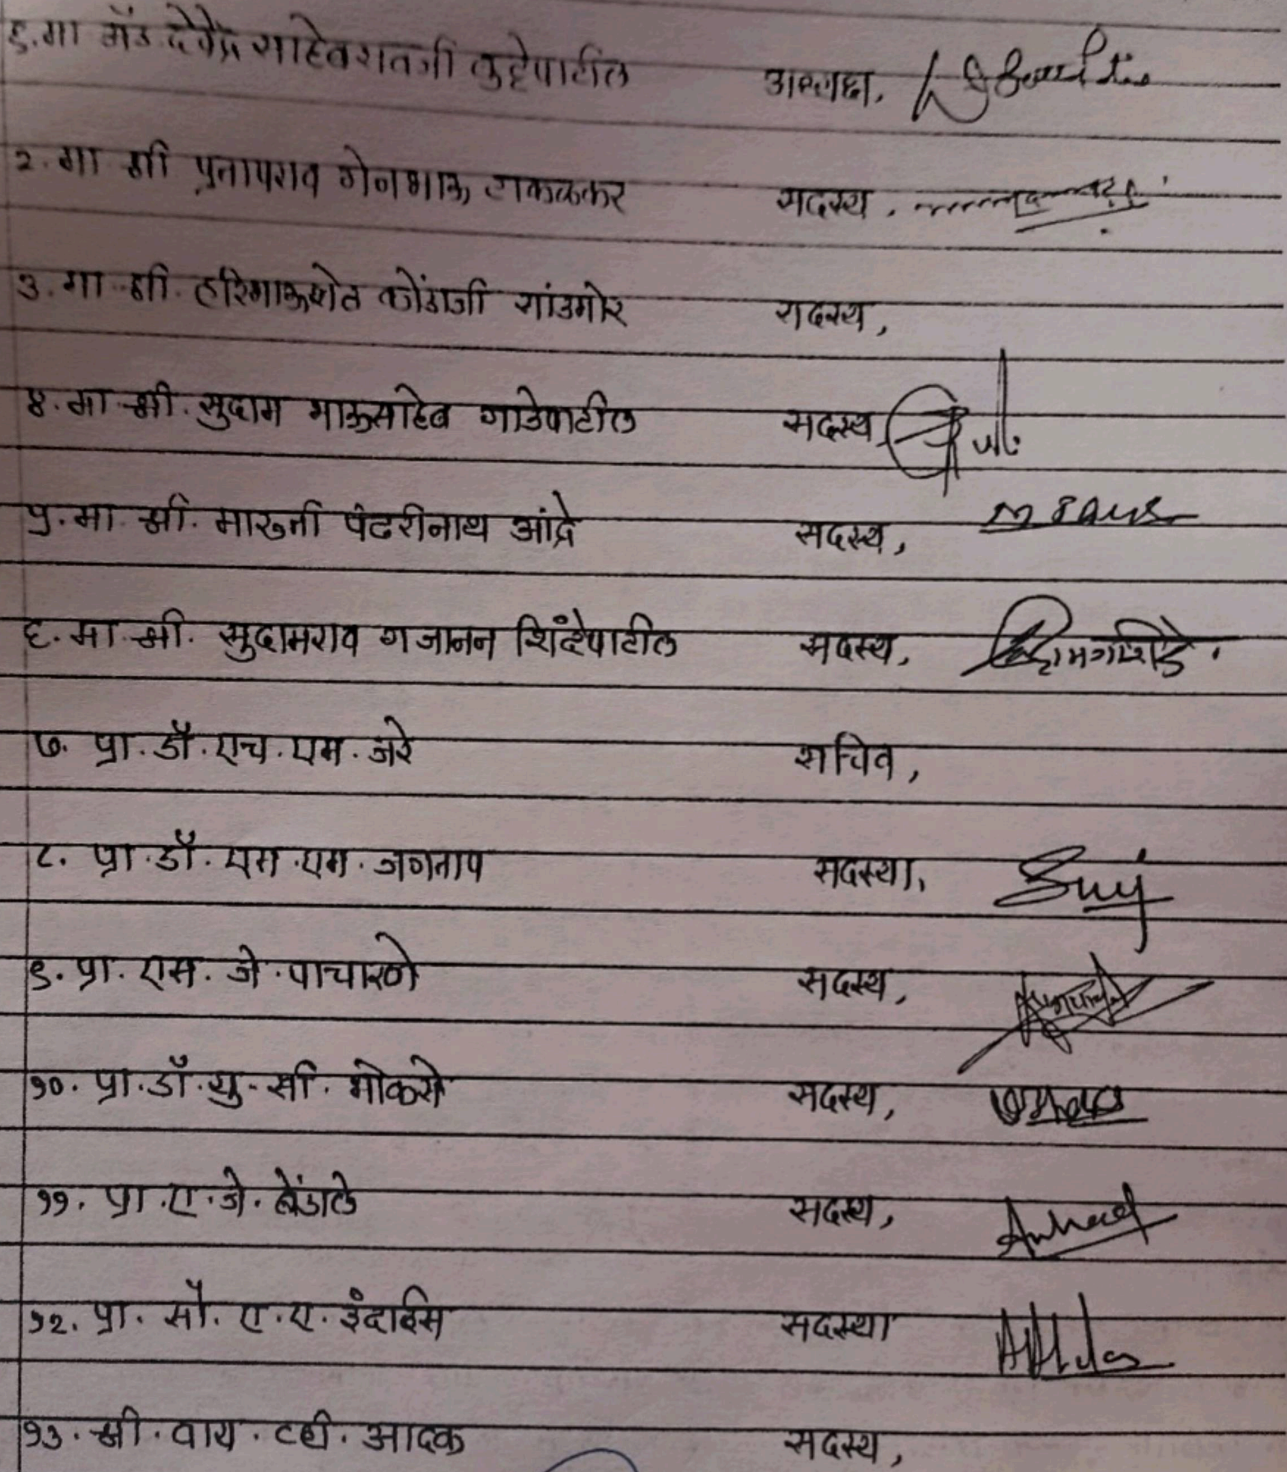 १. मा ॲड देवेंद्र साहेबरावजी बुट्टेपाटील अध्यक्ष,
२. मा श्री प्रतापराव गेनभाऊ टाकळकर सदस्य,
३. मा श्री. हरिभाऊशेठ कोंडाजी सांडभोर सदस्य,
४. मा श्री. सुदाम भाऊसाहेब गाडेपाटील सदस्य,
५. मा श्री. मारुती पंढरीनाथ आंद्रे सदस्य,
६. मा श्री. सुदामराव गजानन शिंदेपाटील सदस्य,
७. प्रा. डॉ. एच. एम. जरे सचिव,
८. प्रा. डॉ. एस. एम. जगताप सदस्या,
९. प्रा. एस. जे. पाचारणे सदस्य,
१०. प्रा. डॉ. यु. सी. भोकसे सदस्य,
११. प्रा. ए. जे. सदस्य,
१२. प्रा. सौ. ए. ए. इंदाईस सदस्या
१३. श्री. वाय. टी. आदक सदस्य,